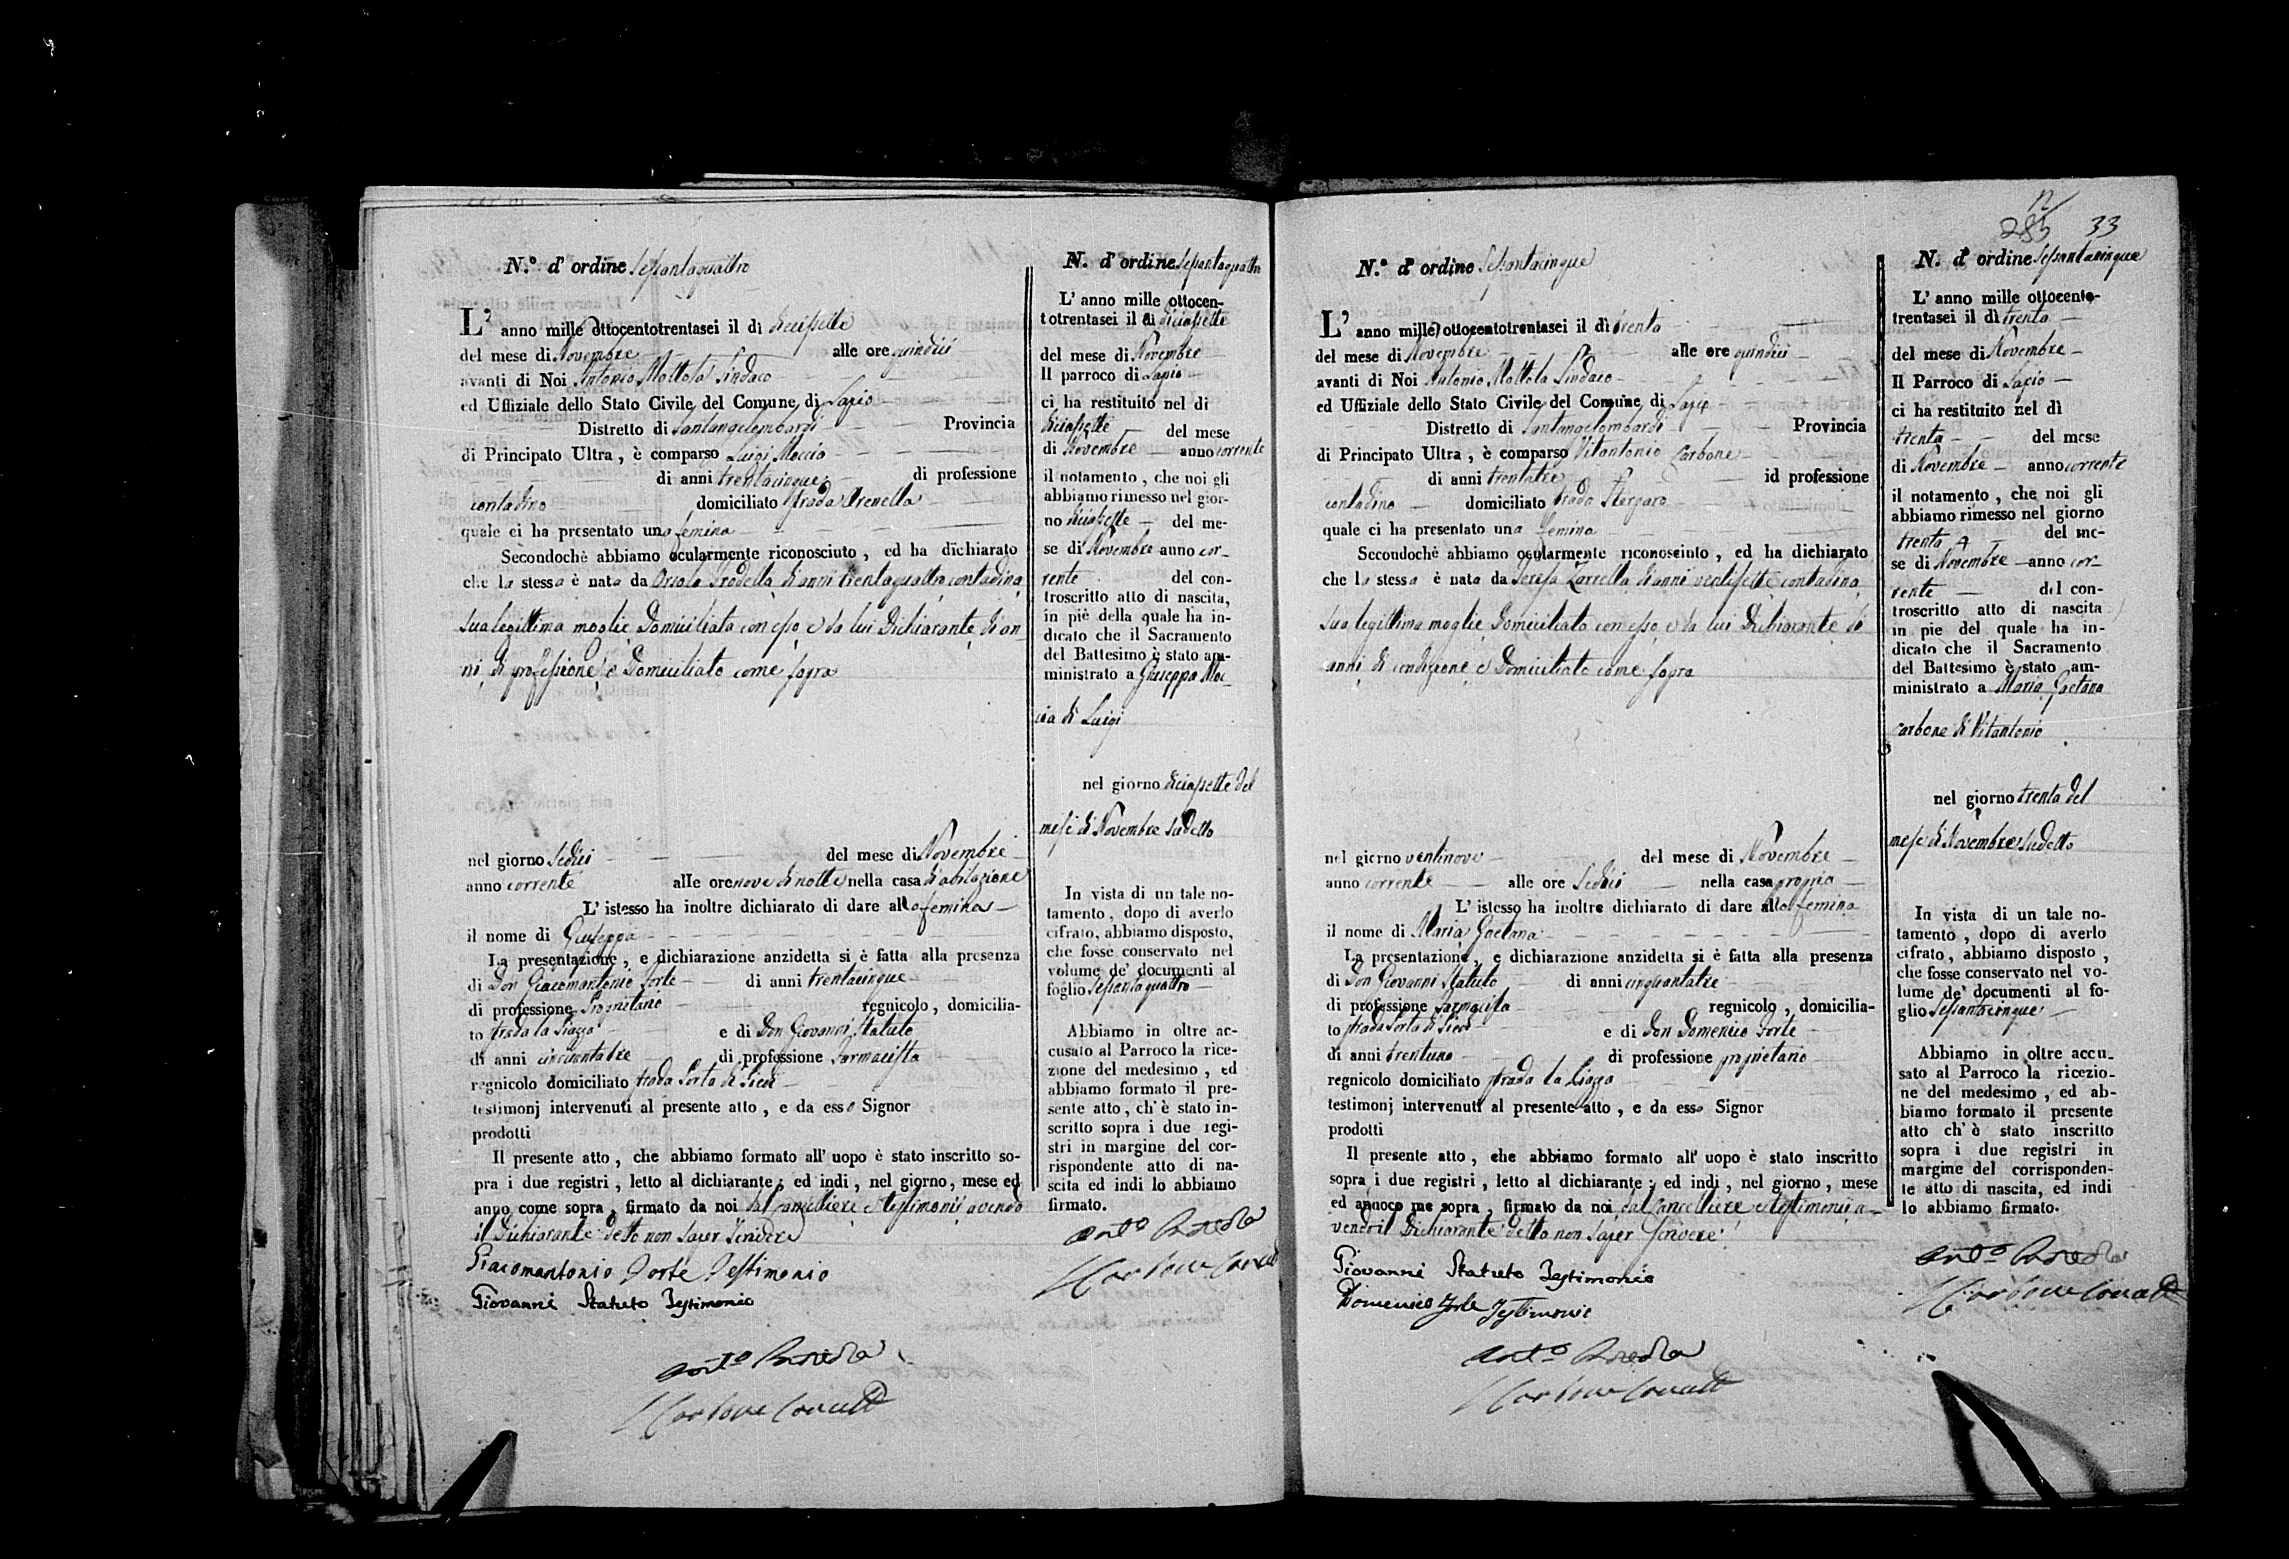 N.º d' ordine Sessantaquattro
L' anno mille ottocentotrentasei il dì diciassette
del mese di Novembre alle ore quindici
avanti di Noi Antonio Mottola Sindaco
ed Uffiziale dello Stato Civile del Comune di Lapio
Distretto di Santangelombardi Provincia
di Principato Ultra, è comparso Luigi Moccia
di anni trentacinque di professione
contadino domiciliato strada Arenella
quale ci ha presentato una femina
Secondochè abbiamo ocularmente riconosciuto, ed ha dichiarato
che la stessa è nata da Orsola Trodella di anni trentaquattro contadina
sua legittima moglie Domiciliata con esso e da lui Dichiarante di an
ni, di professione, e Domiciliato come sopra
nel giorno Sedici del mese di Novembre
anno corrente alle ore nove di notte nella casa d'abitazione
L' istesso ha inoltre dichiarato di dare alla femina
il nome di Giuseppa
La presentazione, e dichiarazione anzidetta si è fatta alla presenza
di Don Giacomantonio Forte di anni trentacinque
di professione Proprietario regnicolo, domicilia-
to strada la Piazza e di Don Giovanni Statuto
di anni cinquantatre di professione Farmacista
regnicolo domiciliato strada Porta di Piedi
testimonj intervenuti al presente atto, e da esso Signor
prodotti
Il presente atto, che abbiamo formato all' uopo è stato inscritto so-
pra i due registri, letto al dichiarante; ed indi, nel giorno, mese ed
anno come sopra, firmato da noi dal Cancelliere e testimonii avendo
il Dichiarante detto non saper scrivere
Giacomantonio Forte Testimonio
Giovanni Statuto Testimonio
N. d' ordine Sessantaquattro
L' anno mille ottocen-
totrentasei il dì diciassette
del mese di Novembre
Il parroco di Lapio
ci ha restituito nel di
diciassette del mese
di Novembre anno corrente
il notamento, che noi gli
abbiamo rimesso nel gior-
no diciassette del me-
se di Novembre anno cor-
rente del con-
troscritto atto di nascita,
in piè della quale ha in-
dicato che il Sacramento
del Battesimo è stato am-
ministrato a Giuseppa Moc-
cia di Luigi
nel giorno diciassette del
mese di Novembre sudetto
In vista di un tale no-
tamento, dopo di averlo
cifrato, abbiamo disposto,
che fosse conservato nel
volume de' documenti al
foglio sessantaquattro
Abbiamo in oltre ac-
cusato al Parroco la rice-
zione del medesimo, ed
abbiamo formato il pre-
sente atto, ch' è stato in-
scritto sopra i due regi-
stri in margine del cor-
rispondente atto di na-
scita ed indi lo abbiamo
firmato.
285 33
N.º d' ordine Sessantacinque
L' anno mille ottocentotrentasei il dì trenta
del mese di Novembre alle ore quindici
avanti di Noi Antonio Mottola Sindaco
ed Uffiziale dello Stato Civile del Comune di Lapio
Distretto di Santangelombardi Provincia
di Principato Ultra, è comparso Vitantonio Carbone
di anni trentatre id professione
contadino domiciliato strada
quale ci ha presentato una femina
Secondochè abbiamo ocularmente riconosciuto, ed ha dichiarato
che la stessa è nata da Teresa Zarrella di anni ventisette contadina
sua legittima moglie Domiciliata con esso e da lui Dichiarante di
anni, di condizione e Domiciliato come sopra
nel giorno ventinove del mese di Novembre
anno corrente alle ore Sedici nella casa propria
L' istesso ha inoltre dichiarato di dare alla femina
il nome di Maria Gaetana
La presentazione, e dichiarazione anzidetta si è fatta alla presenza
di Don Giovanni Statuto di anni cinquantatre
di professione Farmacista regnicolo, domicilia-
to strada Porta di Piedi e di Don Domenico Forte
di anni trentuno di professione proprietario
regnicolo domiciliato strada la Piazza
testimonj intervenuti al presente atto, e da esso Signor
prodotti
Il presente atto, che abbiamo formato all' uopo è stato inscritto
sopra i due registri, letto al dichiarante; ed indi, nel giorno, mese
ed annoco me sopra, firmato da noi dal Cancelliere e testimonii a-
vendo il Dichiarante detto non saper scrivere
Giovanni Statuto Testimonio
Domenico Forte Testimonio
N. d' ordine Sessantacinque
L' anno mille ottocento-
trentasei il dì trenta
del mese di Novembre
Il Parroco di Lapio
ci ha restituito nel dì
trenta del mese
di Novembre anno corrente
il notamento, che noi gli
abbiamo rimesso nel giorno
trenta del me-
se di Novembre anno cor-
rente del con-
troscritto atto di nascita
in pie del quale ha in-
dicato che il Sacramento
del Battesimo è stato am-
ministrato a Maria Gaetana
Carbone di Vitantonio
nel giorno trenta del
mese di Novembre sudetto
In vista di un tale no-
tamento, dopo di averlo
cifrato, abbiamo disposto,
che fosse conservato nel vo-
lume de' documenti al fo-
glio Sessantacinque
Abbiamo in oltre accu-
sato al Parroco la ricezio-
ne del medesimo, ed ab-
biamo formato il presente
atto ch' è stato inscritto
sopra i due registri in
margine del corrisponden-
te atto di nascita, ed indi
lo abbiamo firmato.